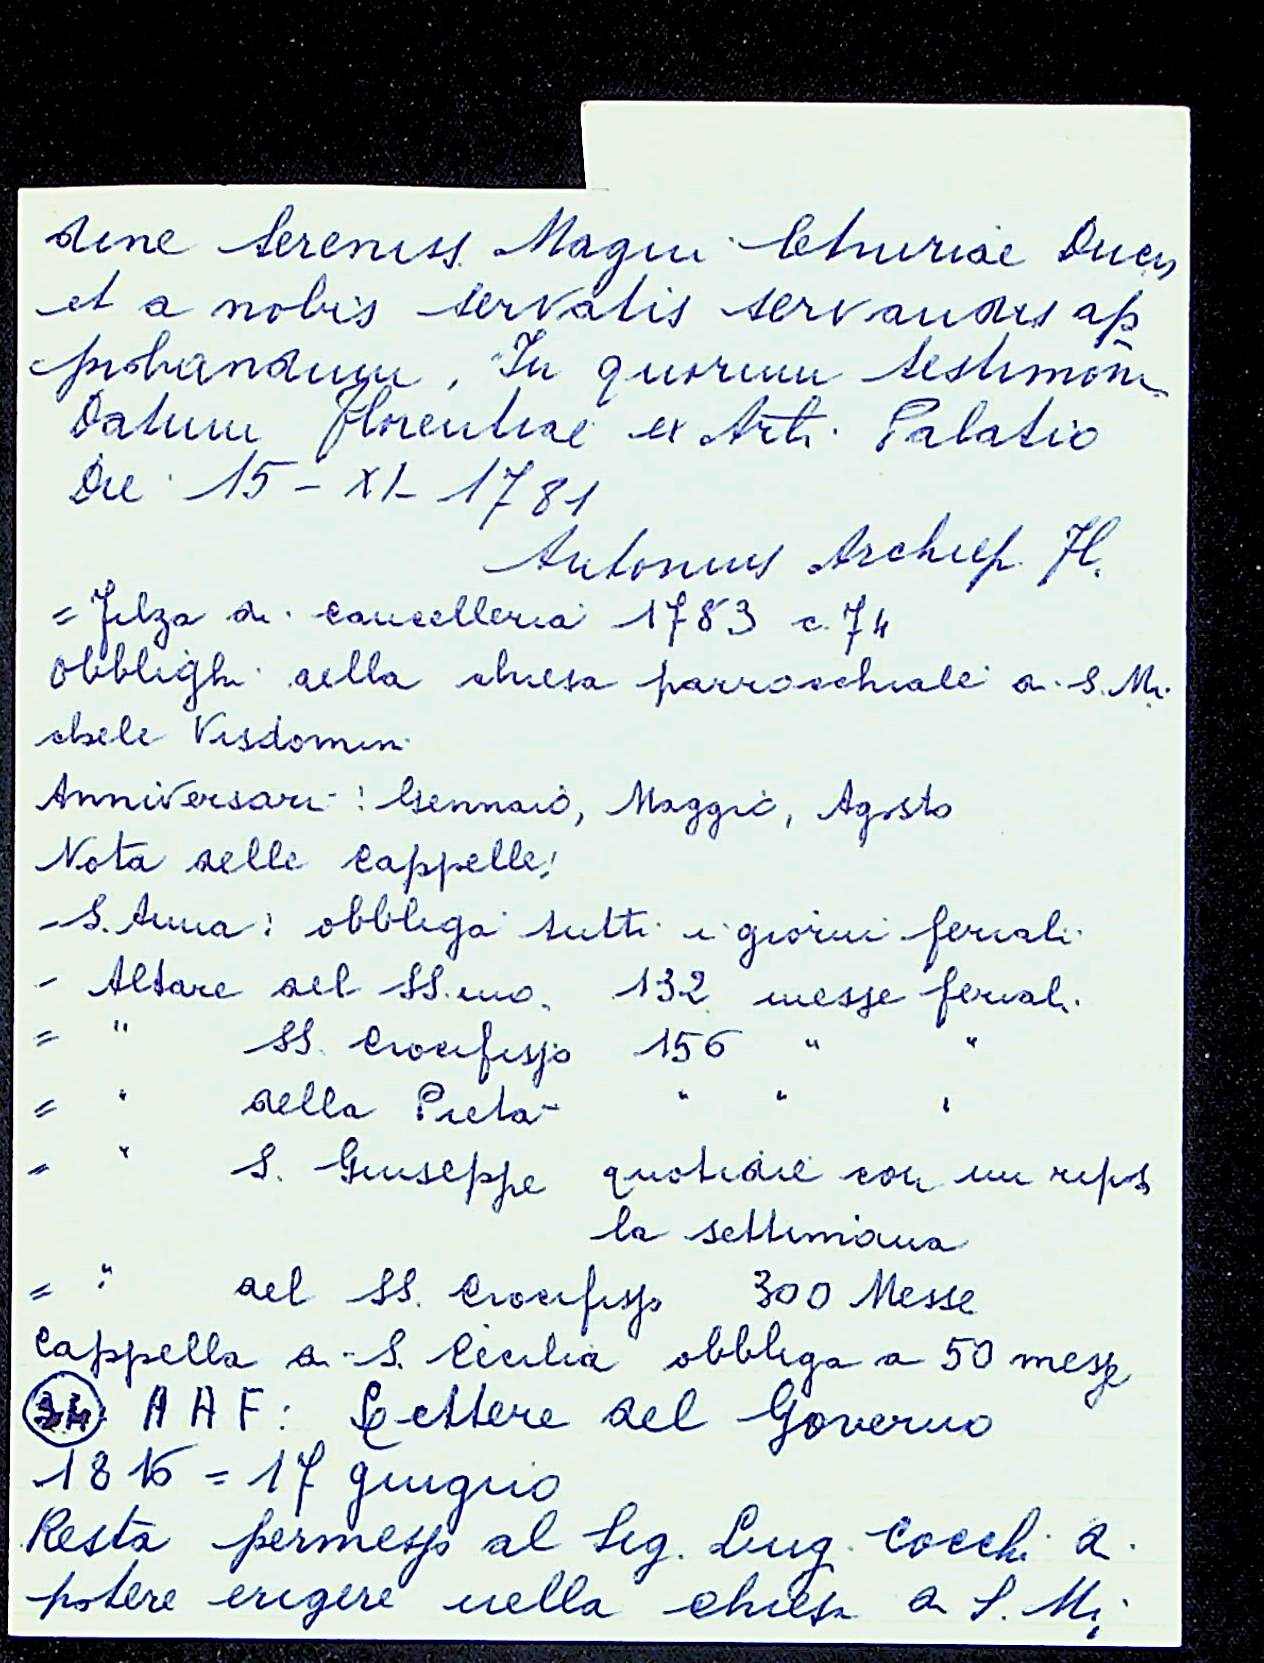 dine Sereniss. Magni Etruriae Ducis
et a nobis servatis servandis ap
probandum, In quorum testimōn
Datum Florentiae ex Arti. Palatio
Die 15 - XI - 1781
Antonius Archiep. Fl.
= Filza di cancelleria 1783 c. 74
Obblighi della chiesa parrocchiale di S. Mi
chele Visdomini
Anniversari: Gennaio, Maggio, Agosto
Nota delle Cappelle:
- S. Anna: obbliga tutti i giorni feriali
- Altare del SS.mo. 132 messe feriali
= " SS. Crocifisso 156 " "
= " della Pietà " " "
= " S. Giuseppe quotidie con un ripos
la settimana
= " del SS. Crocifisso 300 Messe
Cappella di S. Cecilia obbliga a 50 messe
AAF: Lettere del Governo
1816 = 17 giugno
Resta permesso al Sig. Luig. Cocchi di
potere erigere nella chiesa di S. Mi